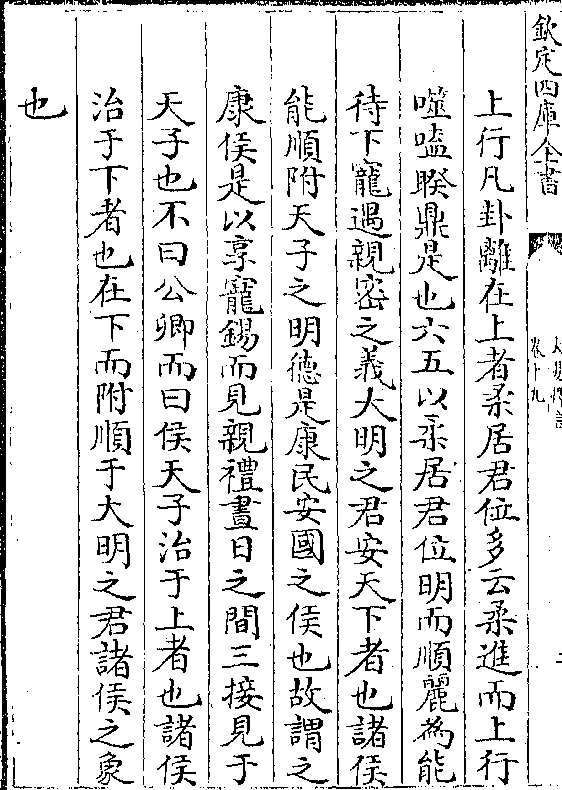 欽定四庫全書
卷十九
上行凡卦離在上者柔居君位多云柔進而上行
噬嗑睽鼎是也六五以柔居君位明而順麗為能
待下寵遇親密之義大明之君安天下者也諸侯
能順附天子之明德是康民安國之侯也故謂之
康侯是以享寵錫而見親禮晝日之間三接見于
天子也不曰公卿而曰侯天子治于上者也諸侯
治于下者也在下而附順于大明之君諸侯之象
也